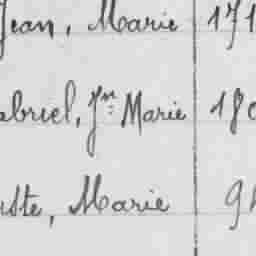 Jean, Marie 171
abriel, Jn Marie 180
uste, Marie 94